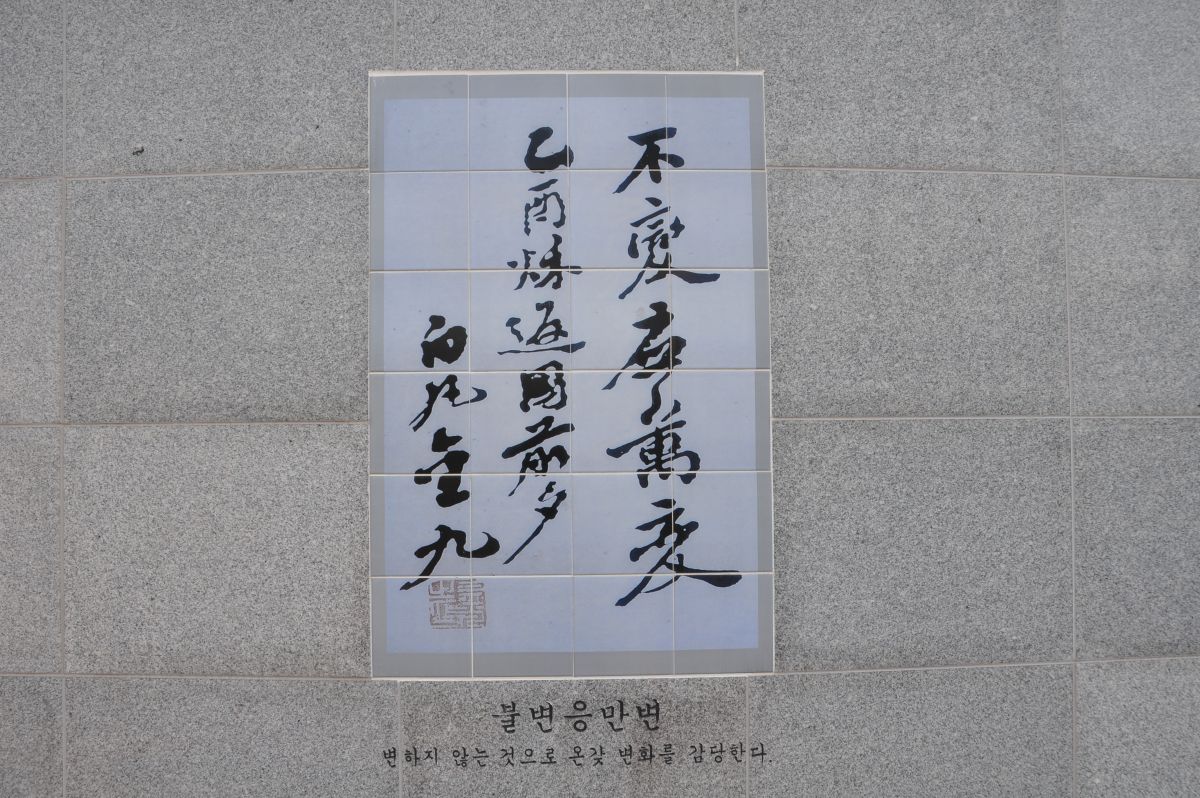 不變應萬變
乙酉秋返國前夕
白凡金九
불변응만변
변하지 않는 것으로 온갖 변화를 감당한다.